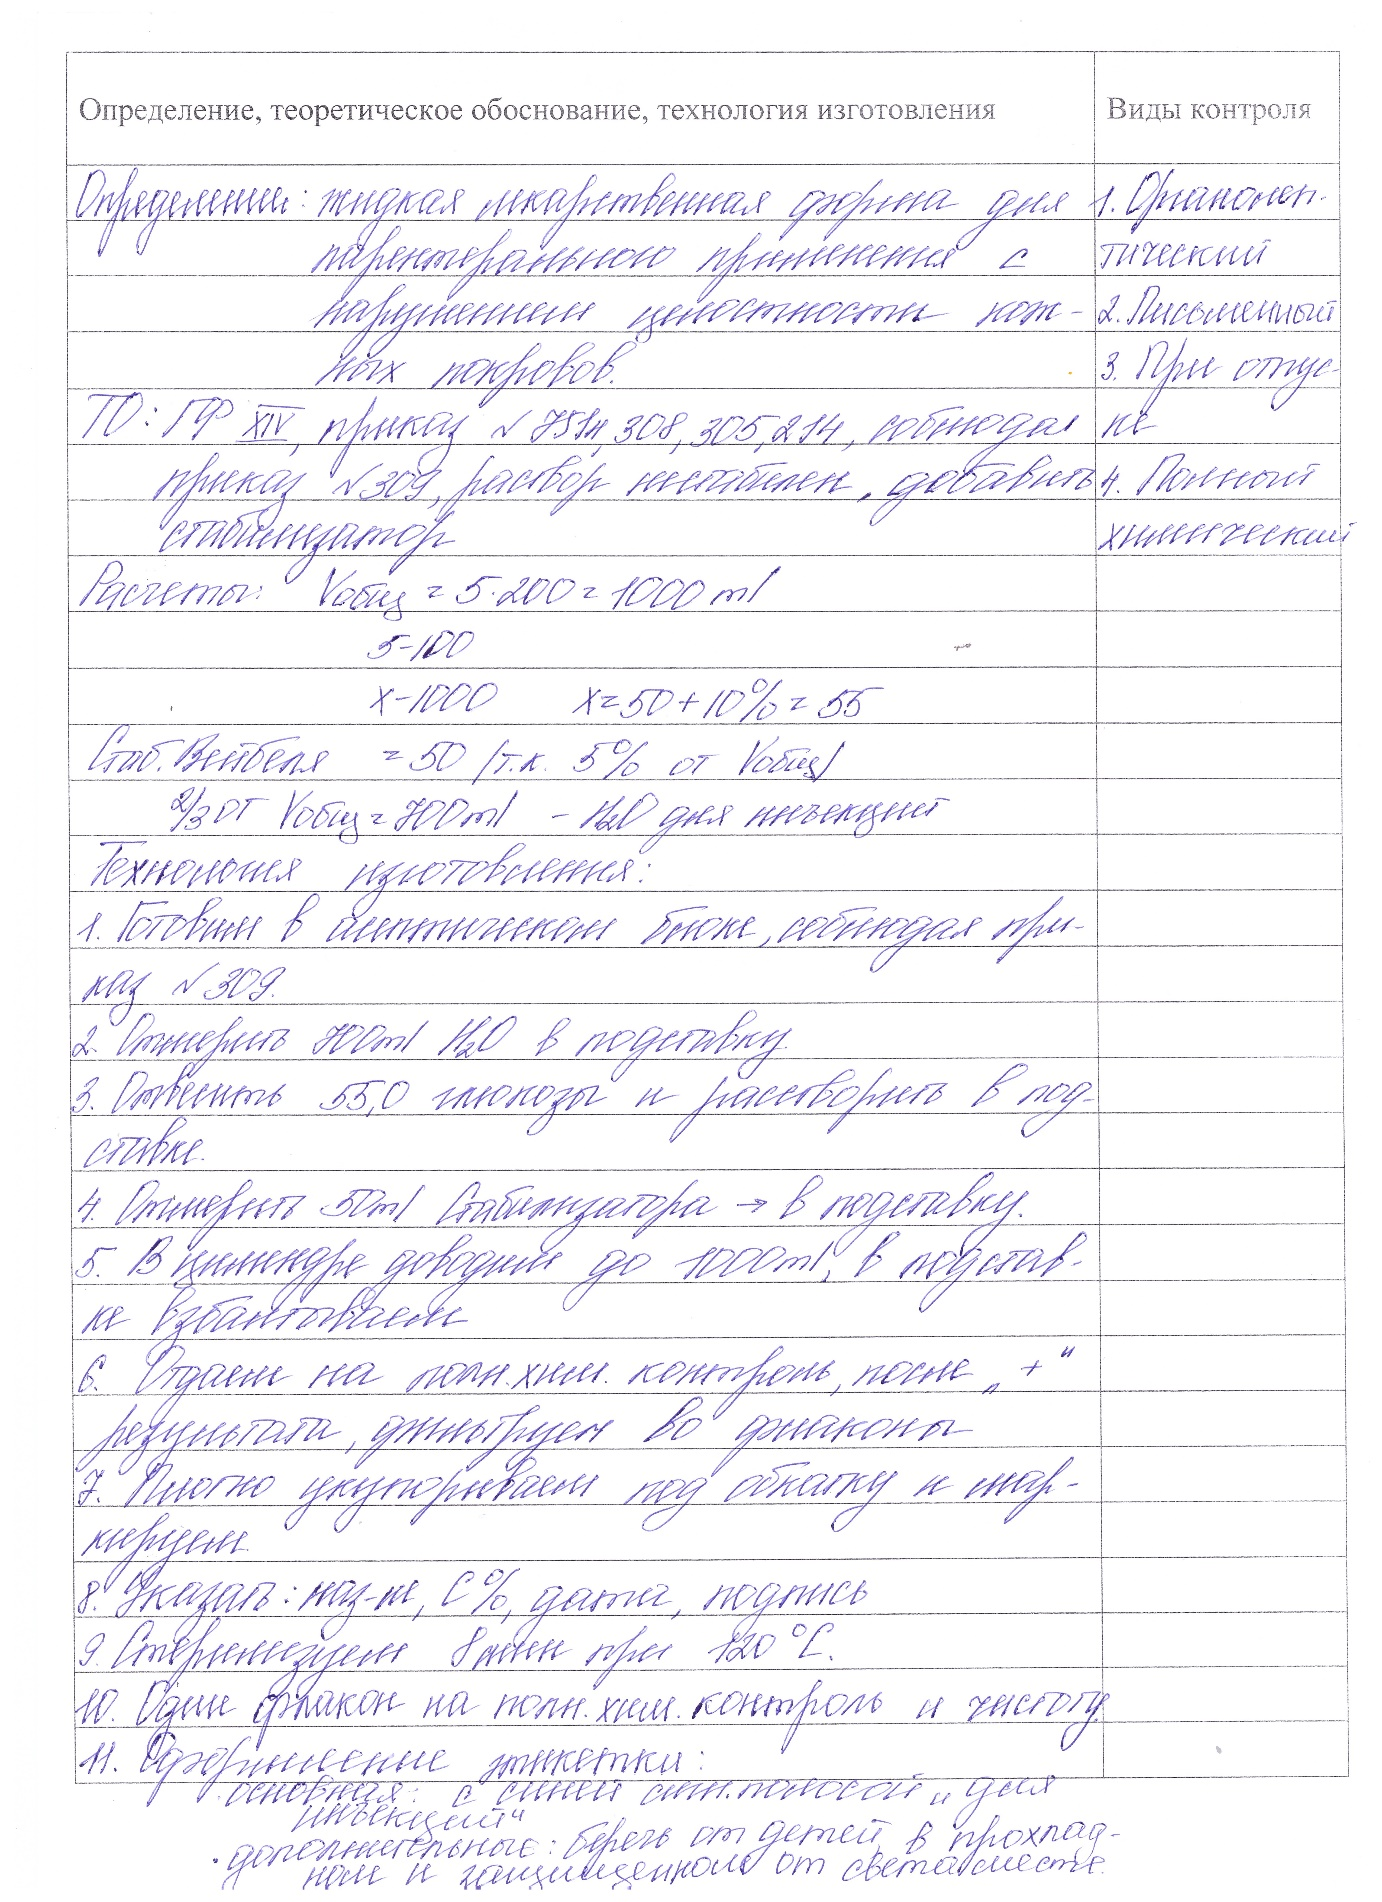 Определение, теоретическое обоснование, технология изготовления Виды контроля
Определение: жидкая лекарственная форма для 1. Органолеп-
парентерального применения с тический
нарушением целостности кож- 2. Письменный
ных покровов. 3. При отпус-
ТО: ГФ XIV, приказ №751н, 308, 305, 214, соблюдая ке
приказ №309, раствор нестабилен, добавить 4. Полный
стабилизатор химический
Расчеты: Vобщ = 5·200 = 1000 ml
5-100
x-1000 x=50+10%=55
Стаб. Вейбеля = 50 (т.к. 5% от Vобщ)
2/3 от Vобщ = 700ml - H2O для инъекций
Технология изготовления:
1. Готовим в асептическом блоке, соблюдая при-
каз №309.
2. Отмерить 700ml H2O в подставку.
3. Отвесить 55,0 глюкозы и растворить в под-
ставке.
4. Отмерить 50ml Стабилизатора → в подставку.
5. В цилиндре доводим до 1000ml, в подстав-
ке взбалтываем
6. Отдаем на полн.хим. контроль, после „+"
результата, фильтруем во флаконы
7. Плотно укупориваем под обкатку и мар-
кируем.
8. Указать: наз-ие, С%, дата, подпись
9. Стерилизуем 8мин при 120°С.
10. Один флакон на полн.хим. контроль и чистоту.
11. Оформление этикетки:
основная: с синей сиг.полосой „для
инъекций"
·дополнительные: беречь от детей, в прохлад-
ном и защищенном от света месте.